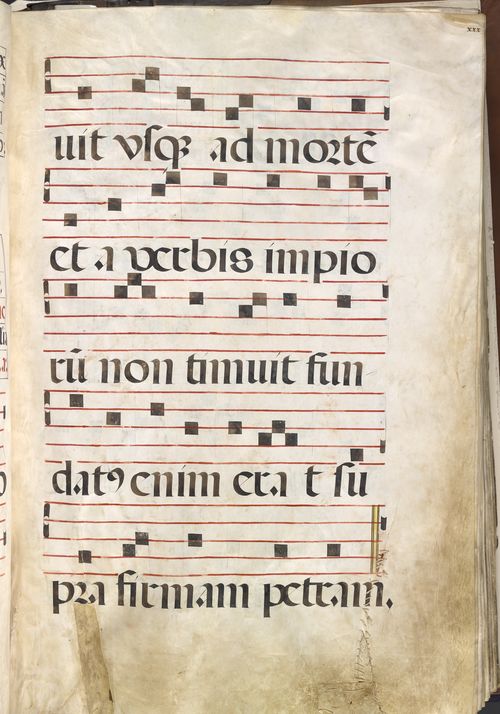 xxx
uit vsqꝫ ad mortē
et a verbis impio
rū non timuit fun
datꝰ enim era t su
pra firmam petram.